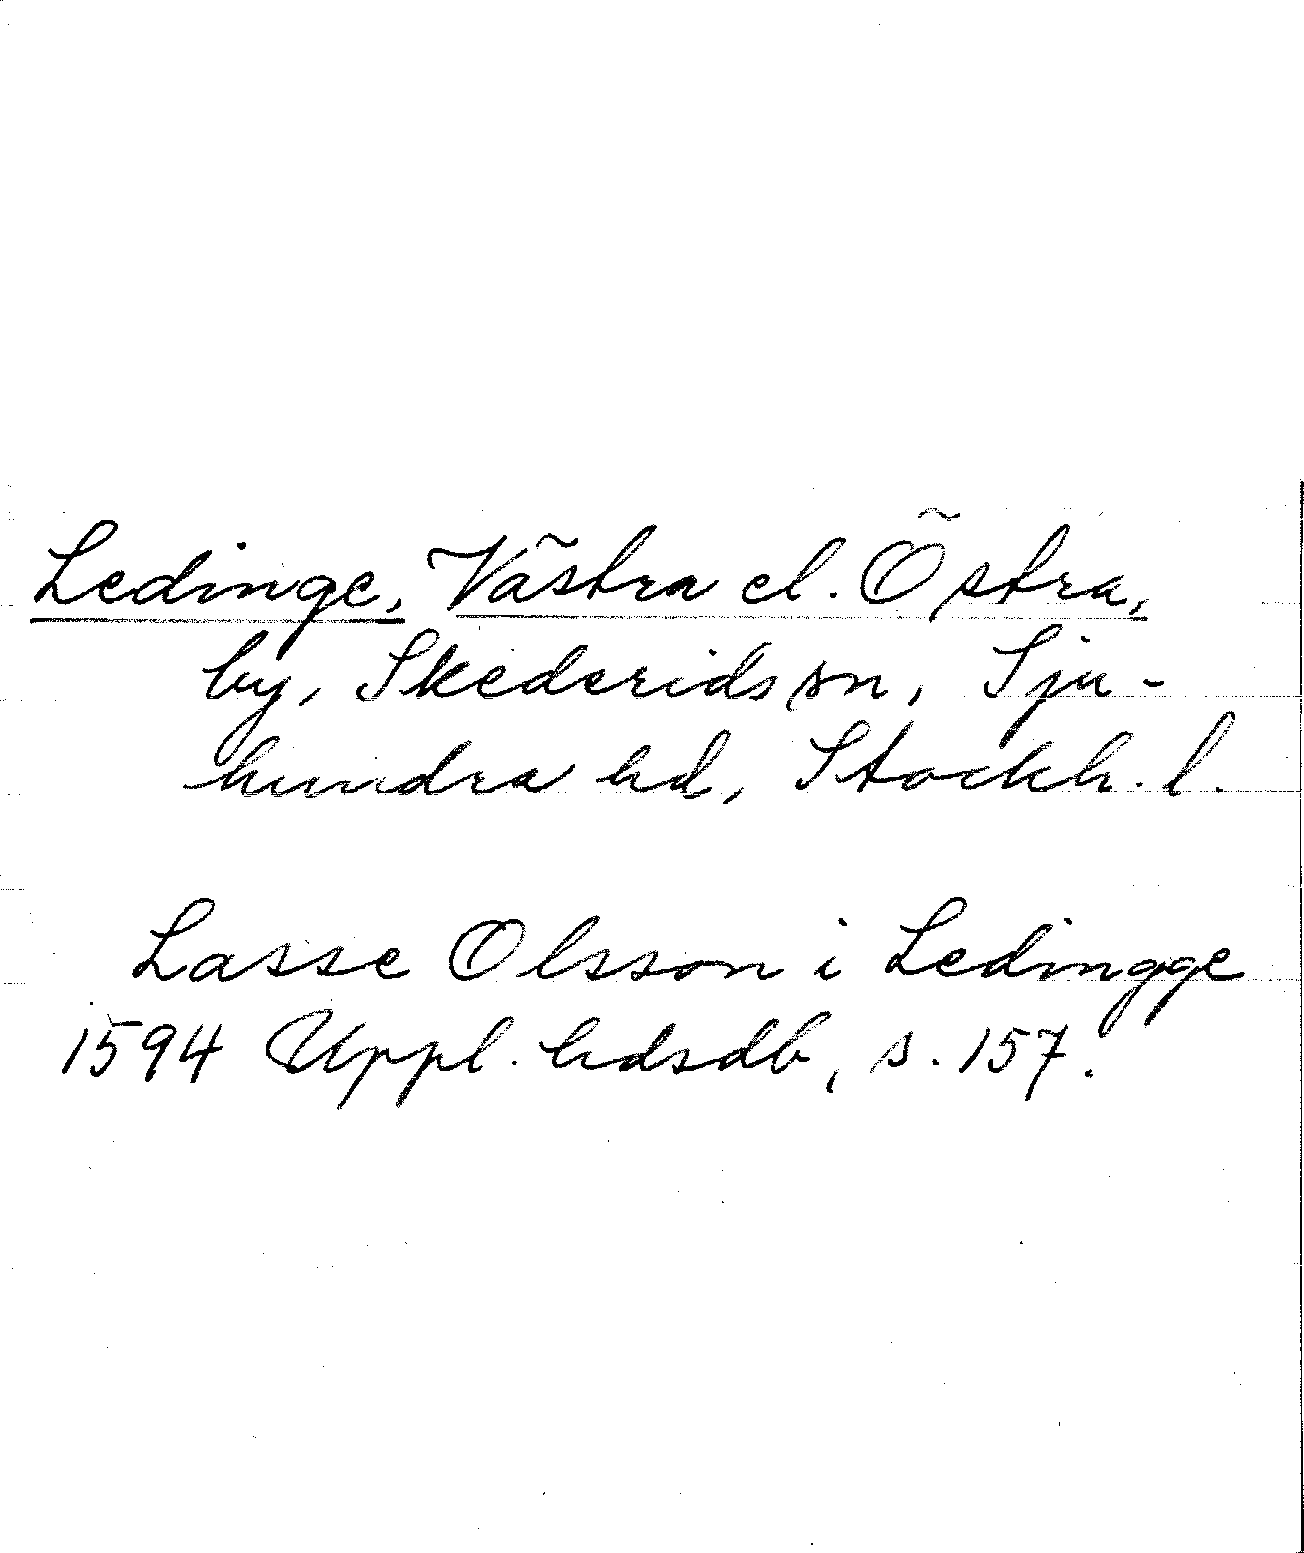 Ledinge, Västra el. Östra,
by, Skederids sn, Sju-
hundra hd, Stockh. l.
Lasse Olsson i Ledingge
1594 Uppl. hdsdb, s. 157.